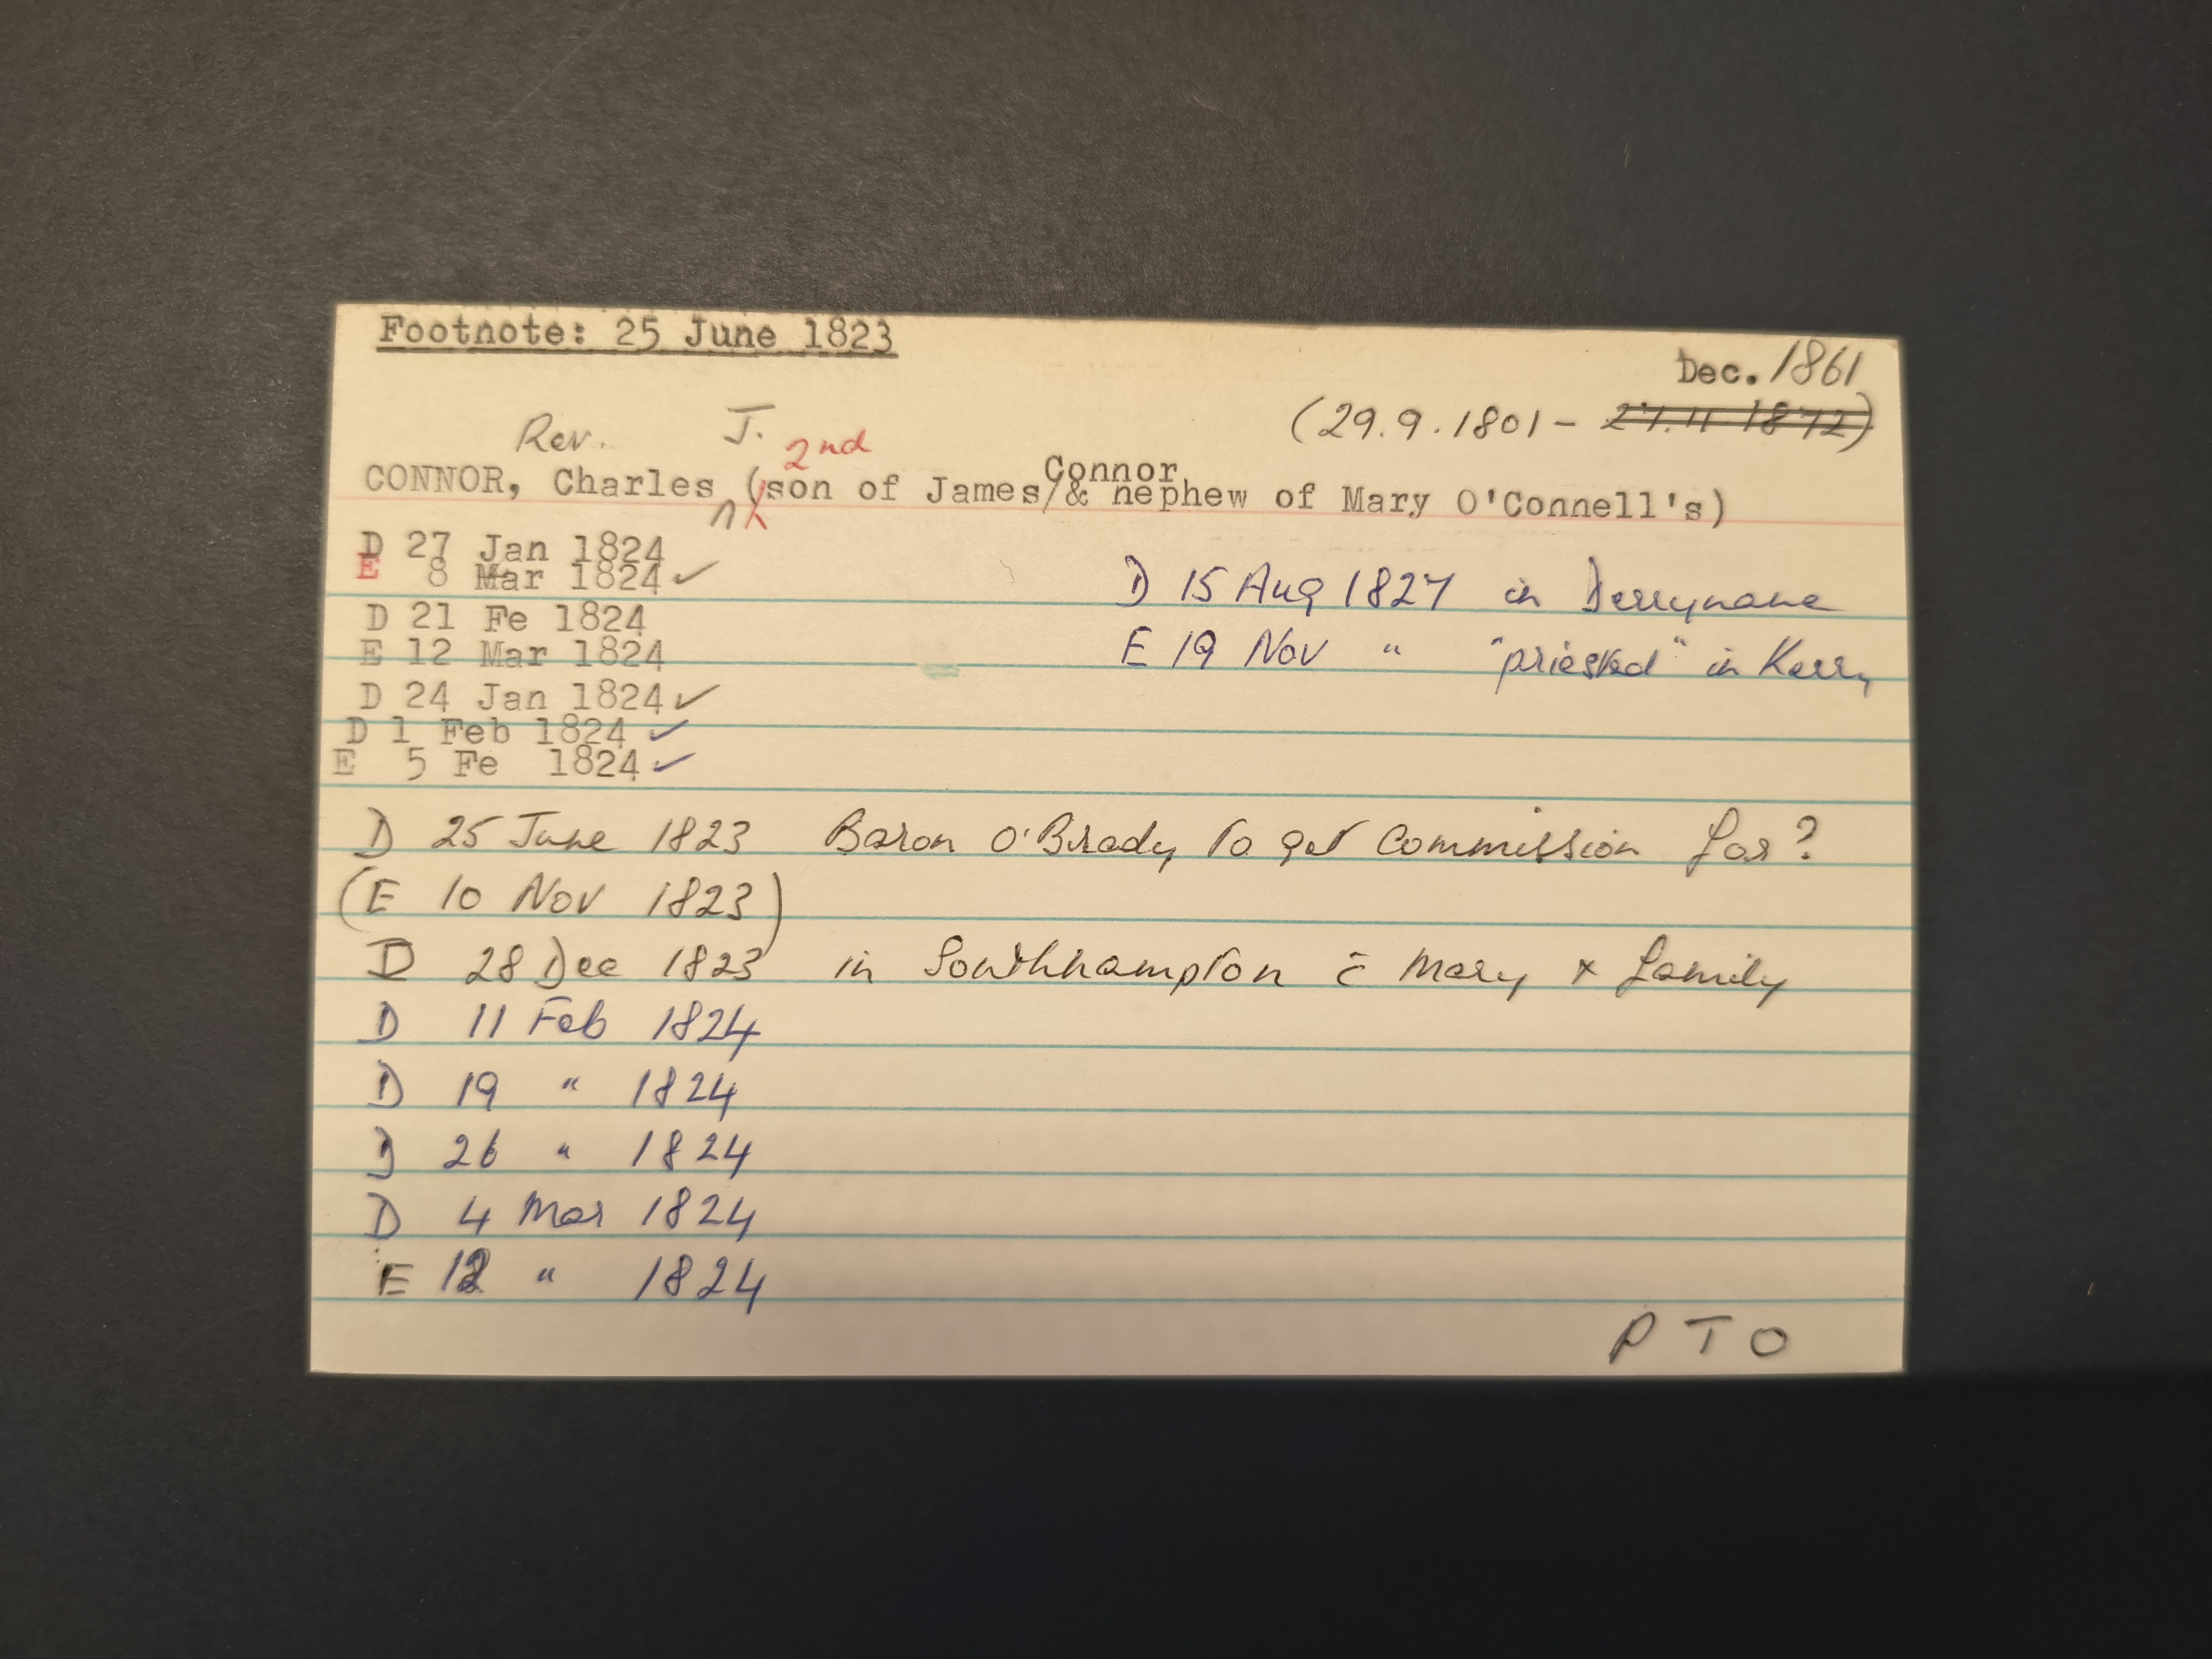 Footnote: 25 June 1823
Dec. 1861
(29.9.1801 - 27.11.1872)
Rev. J. 2nd
CONNOR, Charles (son of James/& nephew of Mary O'Connell's)
Connor
D 27 Jan 1824
E 8 Mar 1824 ✓
D 21 Fe 1824
E 12 Mar 1824
D 24 Jan 1824 ✓
D 1 Feb 1824 ✓
E 5 Fe 1824 ✓
D 15 Aug 1827 in Derrynane
E 19 Nov " "priested" in Kerry
D 25 June 1823 Baron O'Brady to get Commission for?
(E 10 Nov 1823)
D 28 Dec 1823 in Southhampton c̄ Mary + family
D 11 Feb 1824
D 19 " 1824
D 26 " 1824
D 4 Mar 1824
E 12 " 1824
P T O